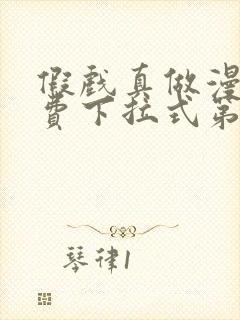 假戏真做漫
费下拉式第
琴律1